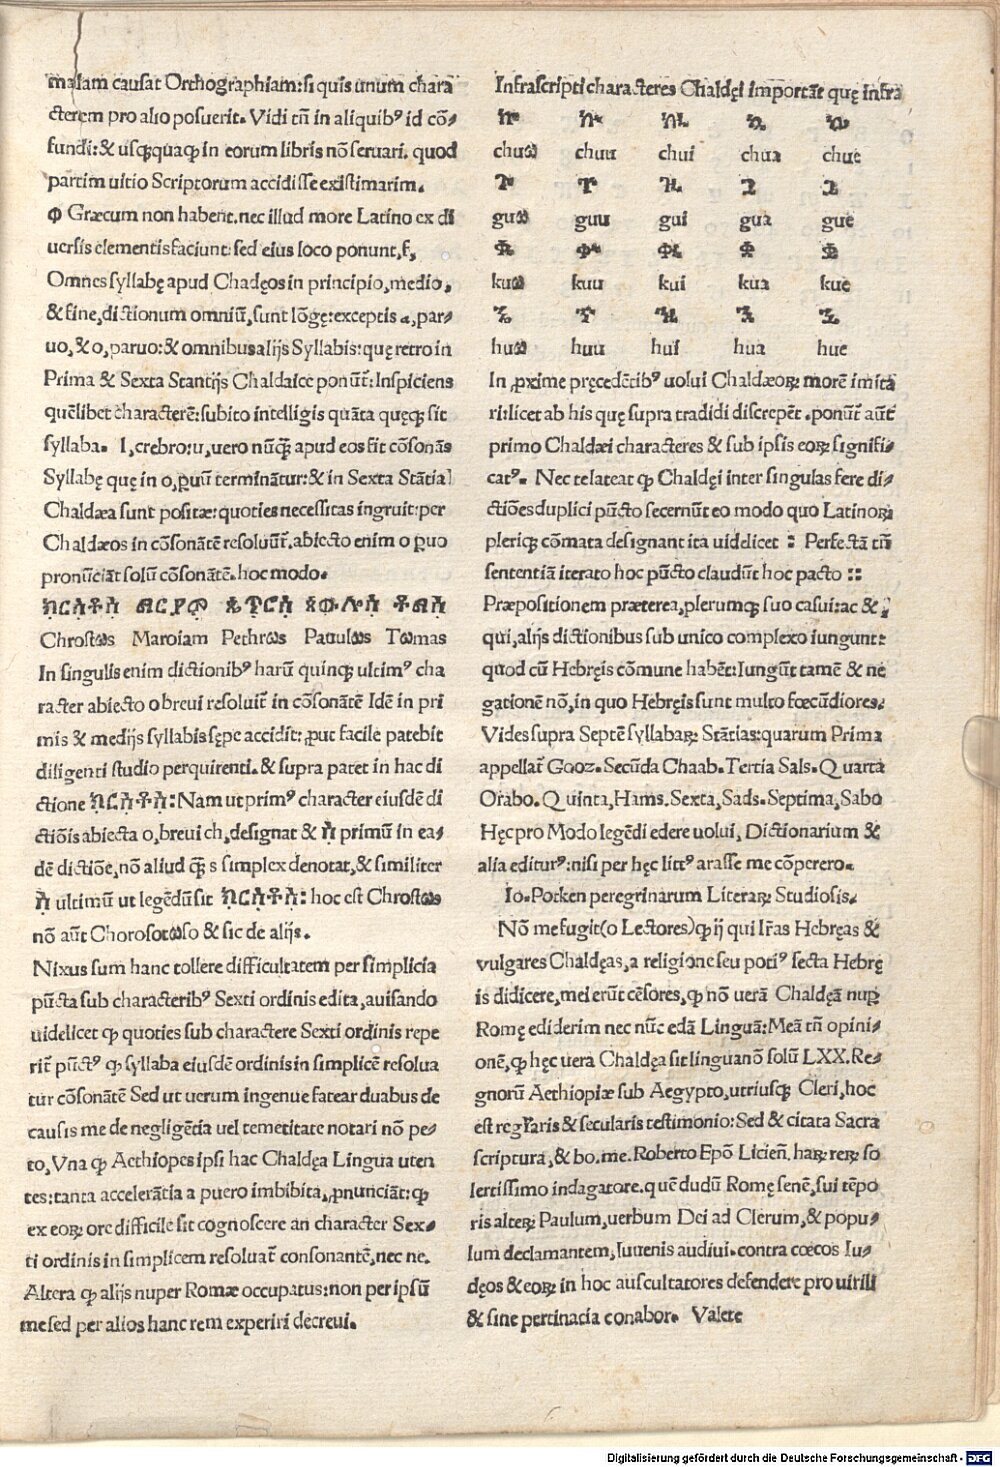 malam causat Orthographiam: si quis unum chara
cterem pro alio posuerit. Vidi tñ in aliquibꝰ id cõ⸗
fundi: & usqꝫquaqꝫ in eorum libris nõ seruari, quod
partim uitio Scriptorum accidisse existimarim.
Φ Græcum non habent, nec illud more Latino ex di
uersis elementis faciunt: sed eius loco ponunt, f,
Omnes syllabę apud Chadęos in principio, medio,
& fine, dictionum omniũ, sunt lõgę: exceptis a, par⸗
uo, & o, paruo: & omnibus alijs Syllabis: quę retro in
Prima & Sexta Stantijs Chaldaice ponũt̃: Inspiciens
quẽlibet characterẽ: subito intelligis quãta quęqꝫ sit
syllaba. I, crebro: u, uero nũq̃ apud eos fit cõsonãs
Syllabę quę in o, ꝑuũ terminãtur: & in Sexta Stãtia
Chaldæa sunt positæ: quoties necessitas ingruit: per
Chaldæos in cõsonãtẽ resoluũt̃. abiecto enim o ꝑuo
pronũciãt solũ cõsonãtẽ. hoc modo.
ክርስቶስ ማርያም ጴጥርስ ጳውሎስ ቶማስ
Chrostωs Maroiam Pethrωs Pauulωs Tωmas
In singulis enim dictionibꝰ harũ quinqꝫ ultimꝰ cha
racter abiecto o breui resoluit̃ in cõsonãtẽ Idẽ in pri
mis & medijs syllabis sępe accidit: ꝓut facile patebit
diligenti studio perquirenti. & supra patet in hac di
ctione ክርስቶስ: Nam ut primꝰ character eiusdẽ di
ctiõis abiecta o, breui ch, designat & ስ primũ in ea⸗
dẽ dictiõe, nõ aliud q̃ s simplex denotat, & similiter
ስ ultimũ ut legẽdũ sit ክርስቶስ: hoc est Chrostωs
nõ aũt Chorosotωso & sic de alijs.
Nixus sum hanc tollere difficultatem per simplicia
pũcta sub characteribꝰ Sexti ordinis edita, auisando
uidelicet ꝙ quoties sub charactere Sexti ordinis repe
rit̃ pũctꝰ ꝙ syllaba eiusdẽ ordinis in simplicẽ resolua
tur cõsonãtẽ Sed ut uerum ingenue fatear duabus de
causis me de negligẽtia uel temetitate notari nõ pe⸗
to, Vna ꝙ Aethiopes ipsi hac Chaldęa Lingua uten
tes: tanta accelerãtia a puero imbibita, ꝓnunciãt: ꝙ
ex eoꝝ ore difficile sit cognoscere an character Sex⸗
ti ordinis in simplicem resoluat̃ consonantẽ, nec ne.
Altera ꝙ alijs nuper Romæ occupatus: non per ipsũ
me sed per alios hanc rem experiri decreui.
Infrascripti characteres Chaldęi importãt quę infra
ኰ ኵ ኲ ኳ ኴ
chuω chuu chui chua chue
ጐ ጕ ጒ ጓ ጔ
guω guu gui gua gue
ቈ ቍ ቊ ቋ ቌ
kuω kuu kui kua kue
ኈ ኍ ኊ ኋ ኌ
huω huu hui hua hue
In ꝓxime pręcedẽtibꝰ uolui Chaldæoꝝ morẽ imita
ri: licet ab his quę supra tradidi discrepẽt. ponũt̃ aũt
primo Chaldæi characteres & sub ipsis eoꝝ signifi⸗
catꝰ. Nec te lateat ꝙ Chaldęi inter singulas fere di⸗
ctiões duplici pũcto secernũt eo modo quo Latinoꝝ
pleriqꝫ cõmata designant ita uiddicet : Perfectã tñ
sententiã iterato hoc pũcto claudũt hoc pacto ::
Præpositionem præterea, plerumqꝫ suo casui: ac &,
qui, alijs dictionibus sub unico complexo iungunt:
quod cũ Hebręis cõmune habẽt: Iungũt tamẽ & ne
gationẽ nõ, in quo Hebręis sunt multo fœcũdiores.
Vides supra Septẽ syllabaꝝ Stãtias: quarum Prima
appellat̃ Gooz. Secũda Chaab. Tertia Sals. Quarta
Orabo. Quinta, Hams. Sexta, Sads. Septima, Sabo
Hęc pro Modo legẽdi edere uolui, Dictionarium &
alia editurꝰ: nisi per hęc littꝰ arasse me cõperero.
Io. Potken peregrinarum Literaꝝ Studiosis.
Nõ me fugit (o Lectores) ꝙ ij qui lr̃as Hebręas &
vulgares Chaldęas, a religione seu potiꝰ secta Hebrę
is didicere, mei erũt cẽsores, ꝙ nõ uerã Chaldęã nuꝑ
Romę ediderim nec nũc edã Linguã: Meã tñ opini⸗
onẽ, ꝙ hęc uera Chaldęa sit lingua nõ solũ LXX. Re⸗
gnorũ Aethiopiæ sub Aegypto, utriusqꝫ Cleri, hoc
est regl̃aris & secularis testimonio: Sed & citata Sacra
scriptura, & bo. me. Roberto Epõ Licieñ. haꝝ reꝝ so
lertissimo indagatore. quẽ dudũ Romę senẽ, sui tẽpo
ris alteꝝ Paulum, uerbum Dei ad Clerum, & popu⸗
lum declamantem, Iuuenis audiui. contra cœcos Iu⸗
dęos & eoꝝ in hoc auscultatores defendere pro uirili
& sine pertinacia conabor. Valete
Digitalisierung gefördert durch die Deutsche Forschungsgemeinschaft - DFG